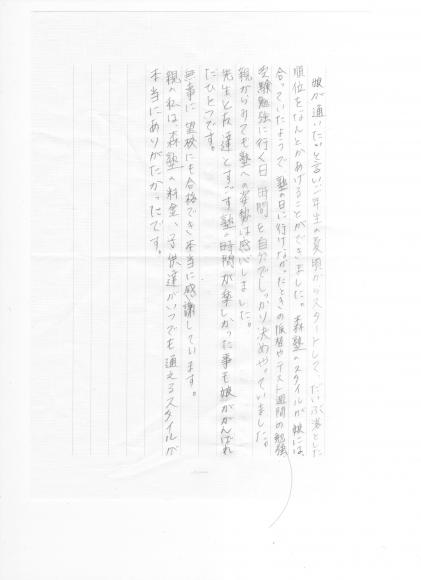 娘が通いたいと言い、一年生の夏頃からスタートして、だいぶ落とした
順位をなんとかあげることができました。森塾のスタイルが娘には、
合っていたようで 塾の日に行けなかったときの振替やテスト週間の勉強、
受験勉強に行く日、時間を自分でしっかり決めやっていました。
親からみても塾への姿勢は感心しました。
先生と友達とすごす塾の時間が楽しかった事も娘ががんばれ
たひとつです。
無事に望校にも合格でき本当に感謝しています。
親の私は森塾の料金、子供達がいつでも通えるスタイルが
本当にありがたかったです。